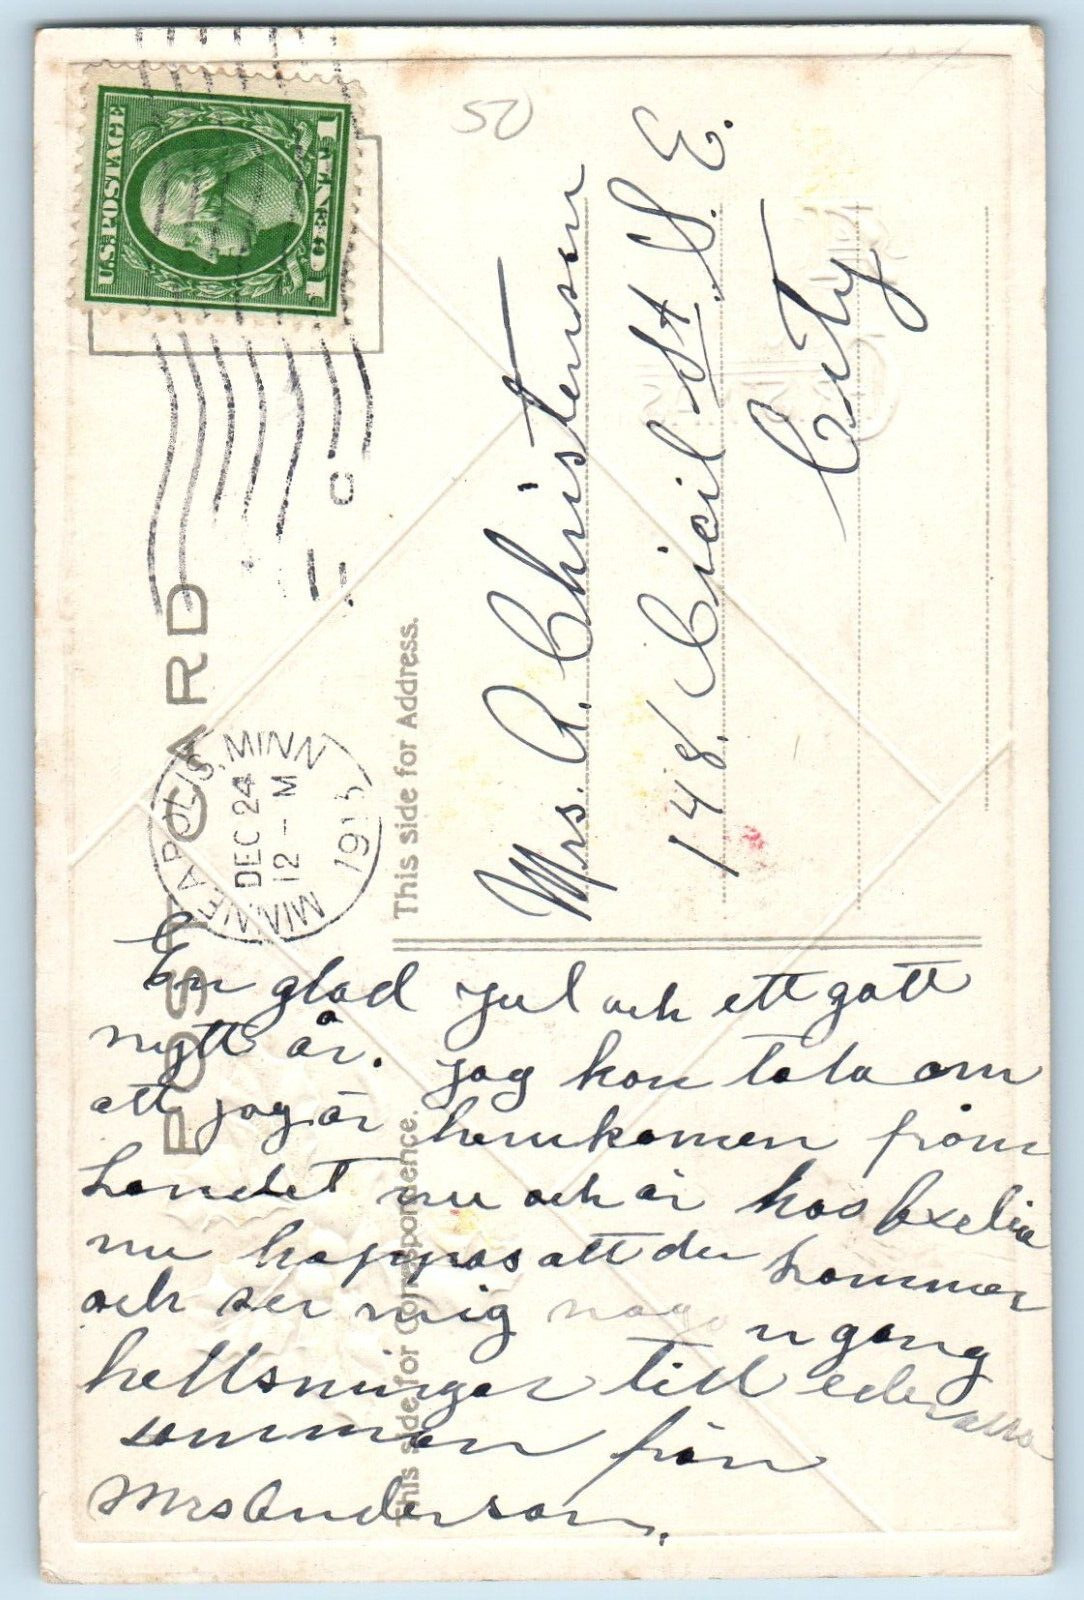 50
U.S. POSTAGE
1 CENT 1
POST CARD
MINNEAPOLIS, MINN
DEC 24
12 - M
1915
This side for Address.
Mrs. A. Christenson
148. Cicil St. S. E.
City
This side for Correspondence.
En glad Jul och ett gott
nytt år. jag kan tala om
att jag är hemkomen från
Landet nu och är hos Exelia
nu hoppas att du kommer
och ser mig någon gång
hellsningar till eder alla
samman från
Mrs Anderson.